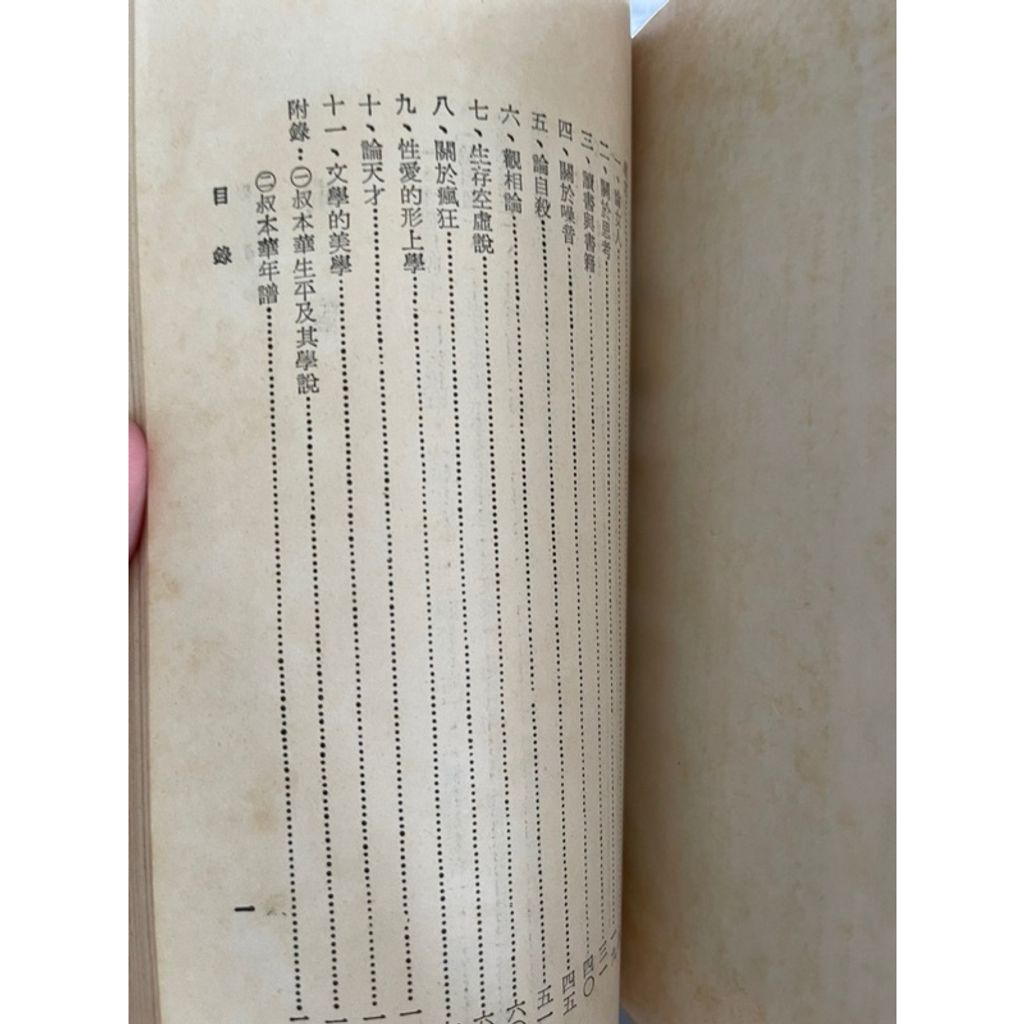 一、論女人
二、關於思考……三一
三、讀書與書籍……四〇
四、關於噪音……四五
五、論自殺……五一
六、觀相論……六〇
七、生存空虛說……六
八、關於瘋狂……
九、性愛的形上學……一
十、論天才……一
十一、文學的美學……一
附錄：㊀叔本華生平及其學說……一
㊁叔本華年譜……一
目錄
一